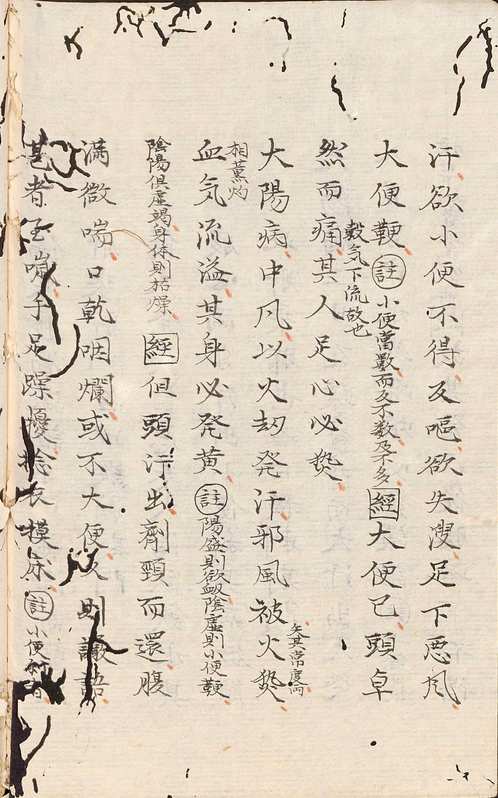 汗欲小便不得反嘔欲失溲足下悪風
大便鞕註小便當數而反不数及不多經大便已頭卓
穀気下流故也
然而痛其人足心必熱
大陽病中风以火劫発汗邪風被火熱
失其常度両
相薫灼
血気流溢其身必発黄註陽盛則欲衂陰虚則小便鞕
陰陽俱虚竭身体則枯燥經但頭汗出劑頸而還腹
満微喘口乾咽爛或不大便久則讝語
甚者至噦手足躁擾捻衣摸床註小便利者